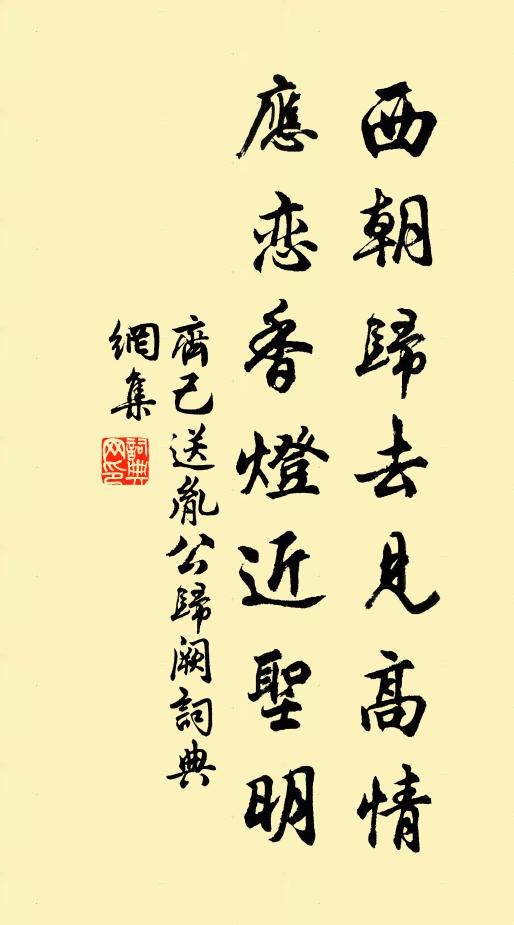 西朝歸去見高情
應恋香燈近聖明
齊己送胤公歸阙詞典
網集
詞典網印